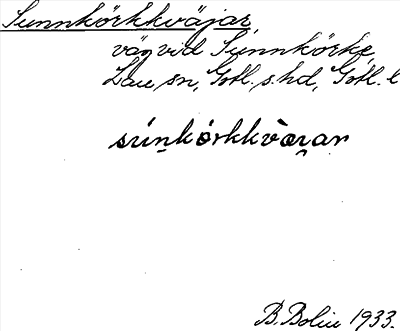 Sunnkörkkväjar,
väg vid Sunnkörke,
Lau sn, Gotl. s. hd, Gotl. l
súnkórkkvὰran
B. Bolin 1933.